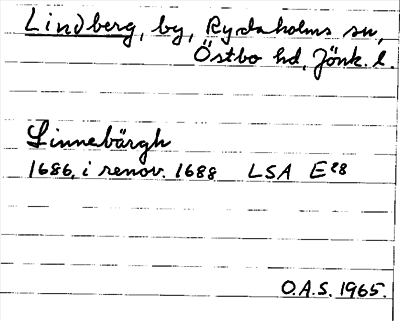 Lindberg, by, Rydaholms sn,
Östbo hd, Jönk. l.
Linnebärgh
1686, i renov. 1688 LSA E28
O.A.S. 1965.